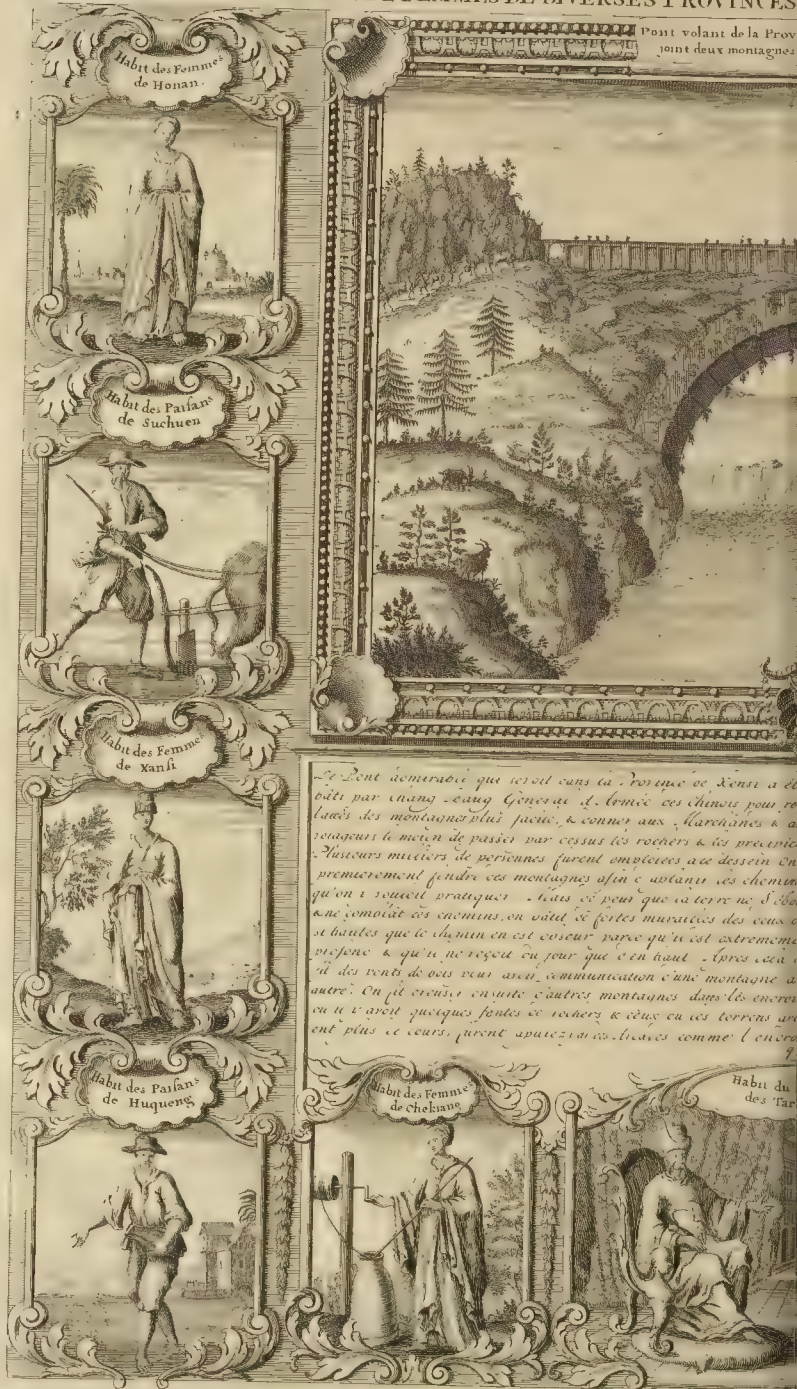 DE DIVERSES PROVINCES
Pont volant de la Prov
joint deux montagnes
Habit des Femmes
de Honan.
Habit des Païsans
de Suchuen
Habit des Femmes
de Xansi
Habit des Païsans
de Huqueng
Le Pont admirable que se voit dans la Province de Xensi a ét
bâti par Chang Leang General d'Armée des Chinois pour re
des montagnes plus facile, & donner aux Marchands & a
voiageurs le moien de passer par dessus les rochers & les precipic
Plusieurs milliers de personnes furent emploiées a ce dessein On
premierement fendre ces montagnes afin d'aplanir les chemins
qu'on i vouloit pratiquer. Mais de peur que la terre ne S'ébo
& ne comblât ces chemins, on bâtit de fortes murailles des deux c
si hautes que le chemin en est obscur parce qu'il est extrememe
profond & qu'il ne reçoit du jour que d'en haut. Apres cela
fit des ponts de bois pour avoir communication d'une montagne a
autre. On fit creuser ensuite d'autres montagnes dans les endroi
ou il i avoit quelques fentes de rochers & ceux ou les torrens av
ent plus de cours, furent comme l'endro
Habit des Femmes
de Chekiang
Habit du
des Tar